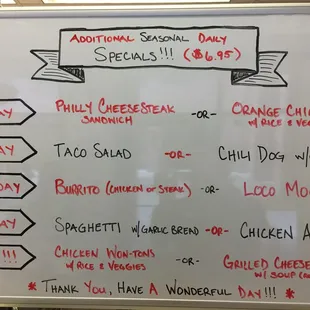 ADDITIONAL SEASONAL DAILY
SPECIALS!!! ($6.95)
AY PHILLY CHEESESTEAK -OR- ORANGE CHI
SANDWICH W/ RICE & VEGG
AY TACO SALAD -OR- CHILI DOG W/
DAY BURRITO (CHICKEN OR STEAK) -OR- LOCO MO
AY SPAGHETTI W/ GARLIC BREAD -OR- CHICKEN A
!!! CHICKEN WON-TONS -OR- GRILLED CHEESE
W/ RICE & VEGGIES W/ SOUP
* THANK YOU, HAVE A WONDERFUL DAY!!! *